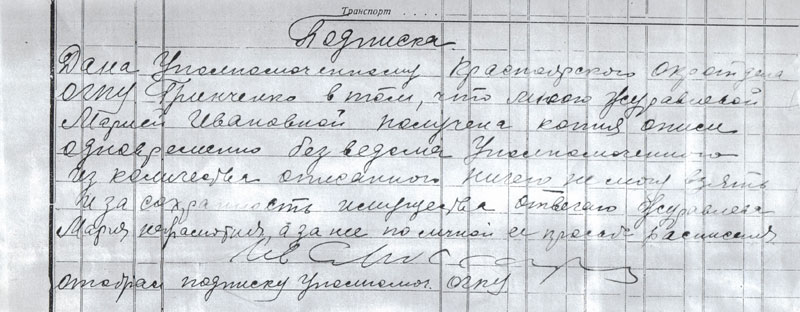 Транспорт . . . .
Подписка
Дана Уполномоченному Красноярского окротдела
ОГПУ Гринченко в том, что мною Журавлевой
Марией Ивановной получена копия описи
одновременно без ведома Уполномоченного
из количества описанного ничего не могу взять
и за сохранность имущества отвечаю Журавлева
Мария неграмотная, а за нее по личной ее просьбе расписался
отобрал подписку Уполномоч. ОГПУ